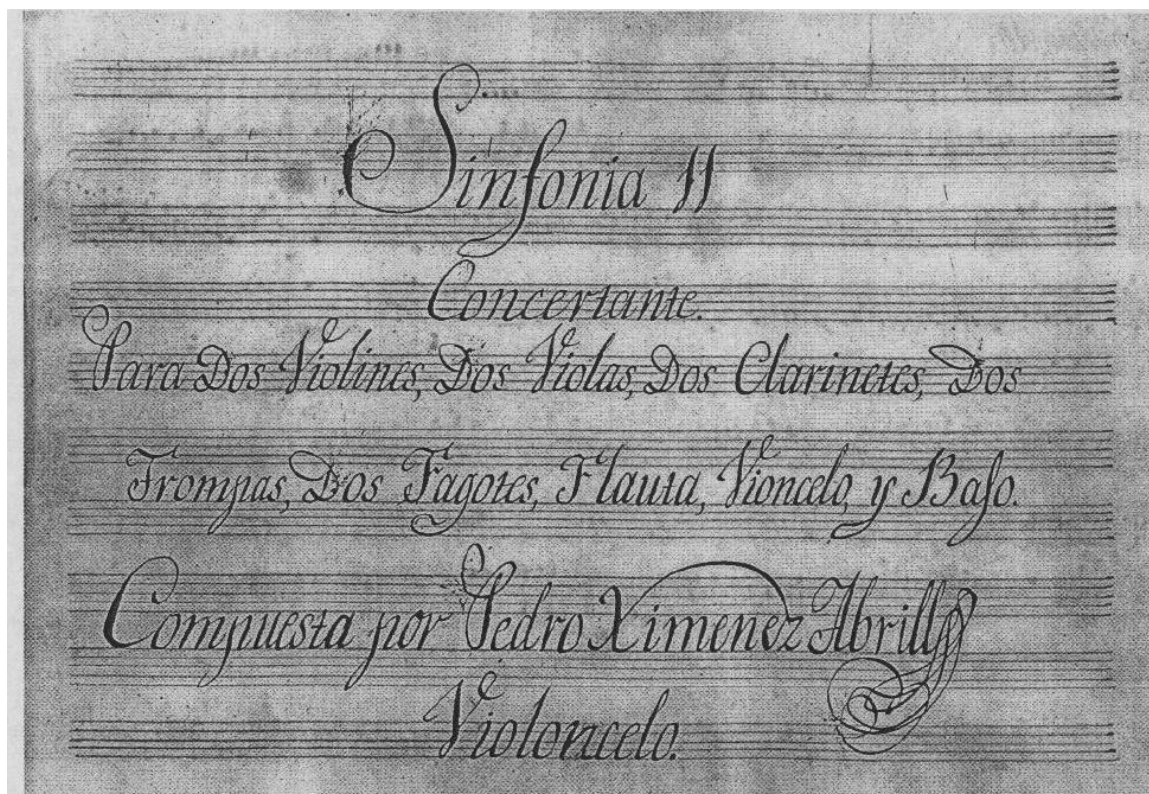 Sinfonia 11
Concertante.
Para Dos Violines, Dos Violas, Dos Clarinetes, Dos
Trompas, Dos Fagotes, Flauta, Vioncelo, y Baſo.
Compuesta por Pedro Ximenez Abrill
Violoncelo.